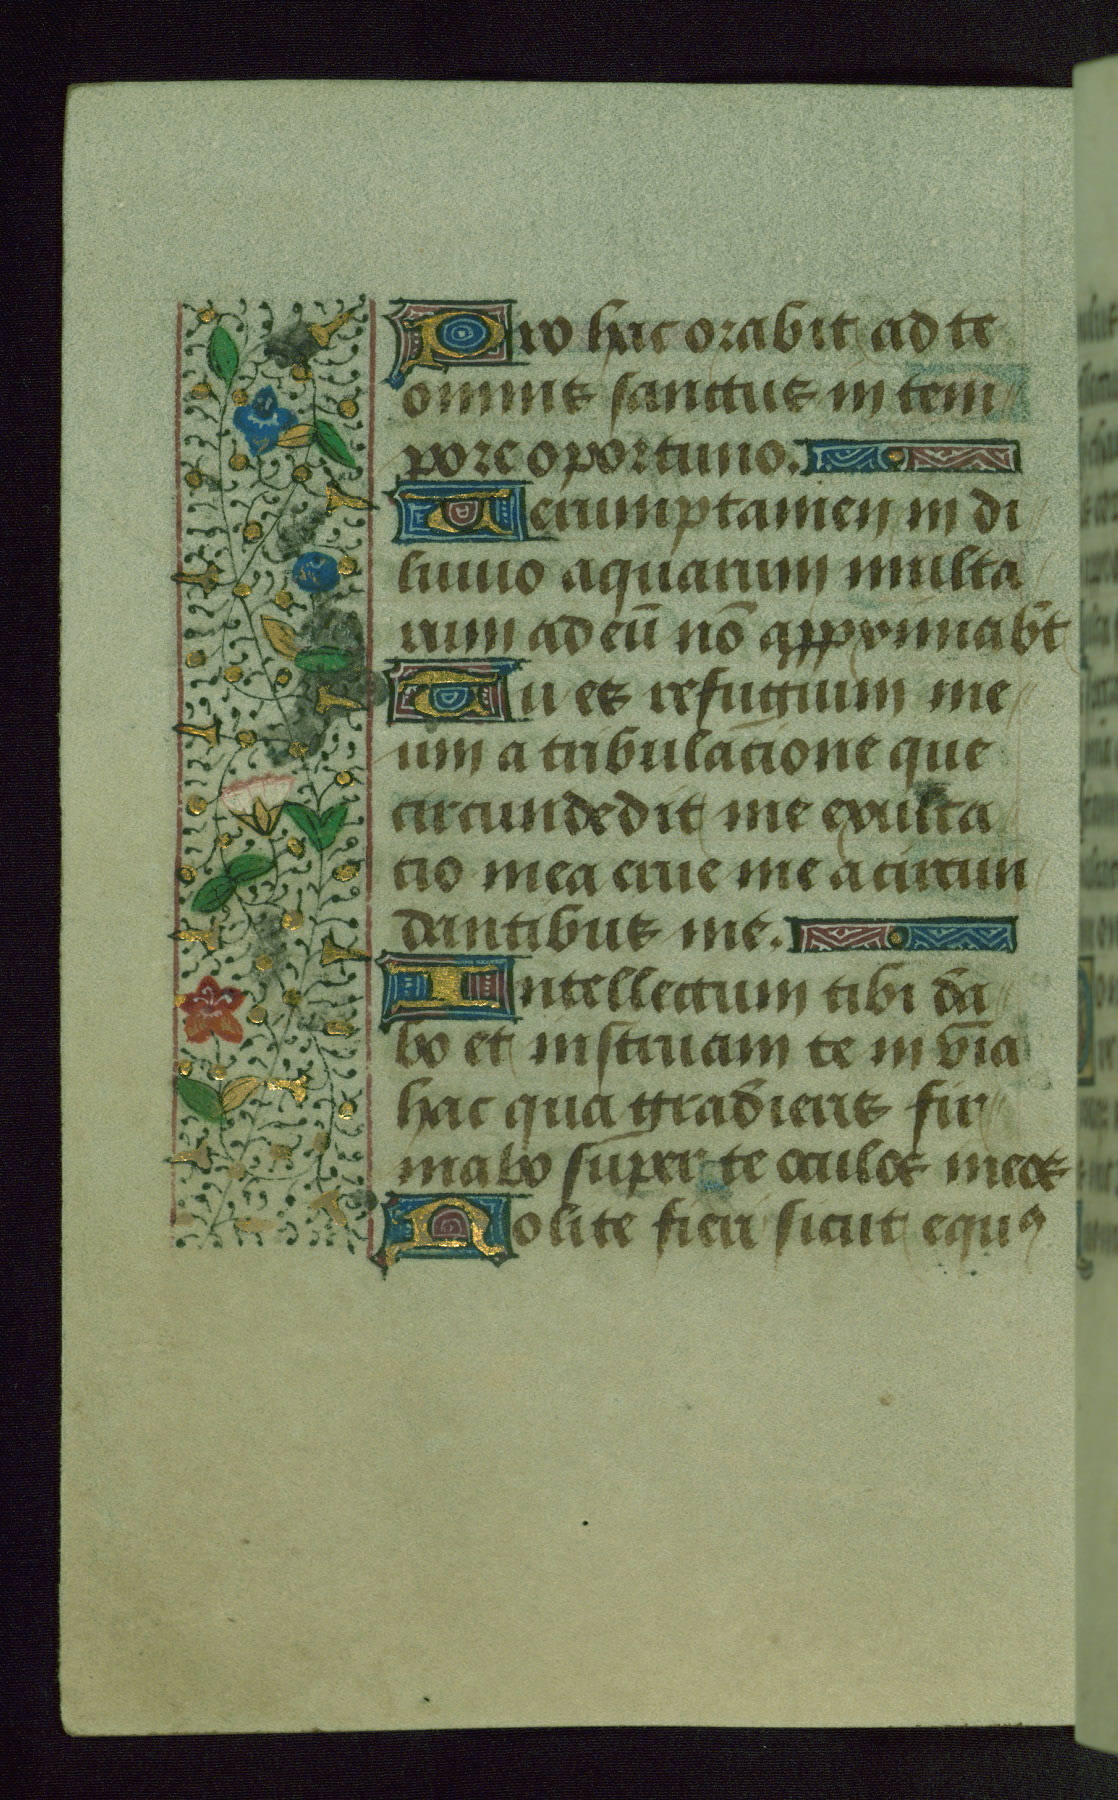 Pro hac orabit ad te
omnis sanctus in tem
pore oportuno.
Uerumptamen in di
luuio aquarum multa
rum ad eū nō apprimabūt
Tu es refugium me
um a tribulacione que
circundedit me exulta
cio mea erue me a circun
dantibus me.
Intellectum tibi da
bo et instruam te in via
hac qua gradieris fir
mabo super te oculos meos
Nolite fieri sicut equꝰ